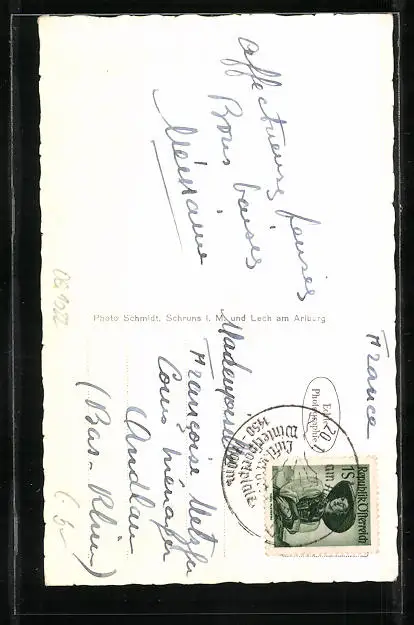 affectueuses pensées
Bons baisers
Photo Schmidt, Schruns i. M. und Lech am Arlberg
Echte
Photographie
France
Mademoiselle
Françoise Metzger
Cours ménager
Andlau
(Bas-Rhin)
Luftkurort
Wintersportplatz
1450
Republik Österreich